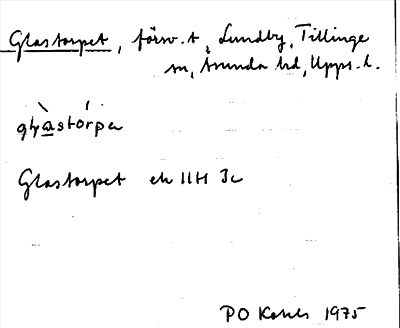 Glastorpet, försv. t, Lundby, Tillinge
sn, Åsunda hd, Upps. l.
Glastorpet ek 11H 3c
PO 1975